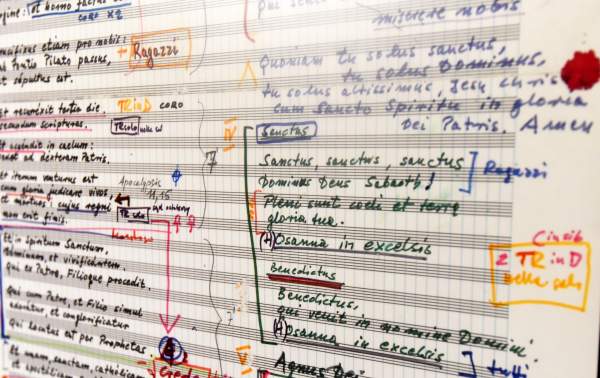 et homo factus
coro x2
crucifixus etiam pro nobis:
Pontio Pilato passus,
et sepultus est.
+ Ragazzi
et resurrexit tertia die,
secundum scripturas.
TR in D coro
TR solo
et ascendit in caelum:
sedet ad dexteram Patris.
et iterum venturus est
cum gloria judicare vivos,
et mortuos: cujus regni
non erit finis.
Apocalypsis
11,15
TR
Et in spiritum Sanctum,
dominum, et vivificantem.
Qui ex Patre, Filioque procedit.
Qui cum Patre, et Filio simul
adoratur, et conglorificatur
Qui locutus est per Prophetas
Et unam, sanctam, catholicam
Credo
miserere nobis
Quoniam tu solus sanctus,
tu solus Dominus,
tu solus altissimus, Jesu Chris
cum Sancto Spiritu in gloria
Dei Patris. Amen
IV
Sanctus
Sanctus, sanctus, sanctus
Dominus Deus Sabaoth!
Ragazzi
Pleni sunt coeli et terra
gloria tua.
(H)Osanna in excelsis
Benedictus
Benedictus,
qui venit in nomine Domini.
(H)Osanna in excelsis
V
Agnus Dei
tutti
2 TR in D
nella sala